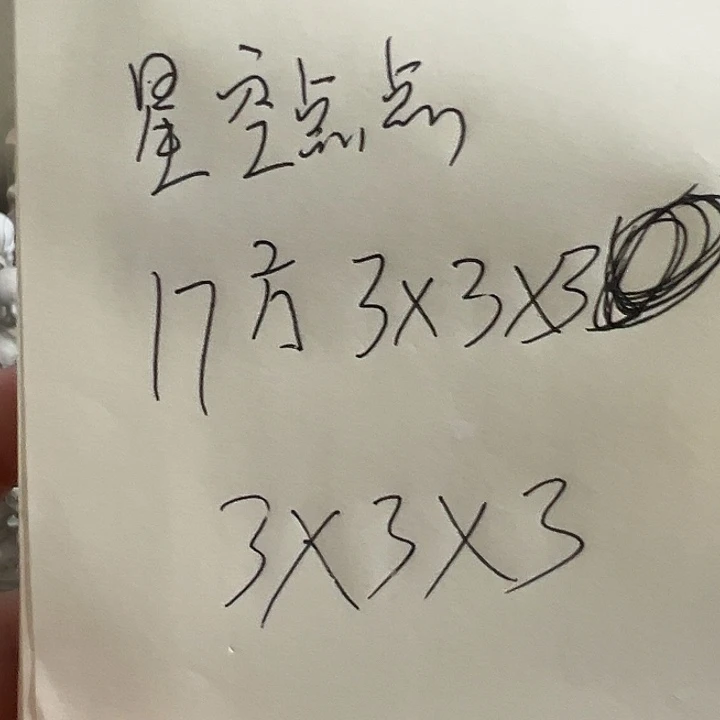 星空点点
17方 3×3×3
3×3×3